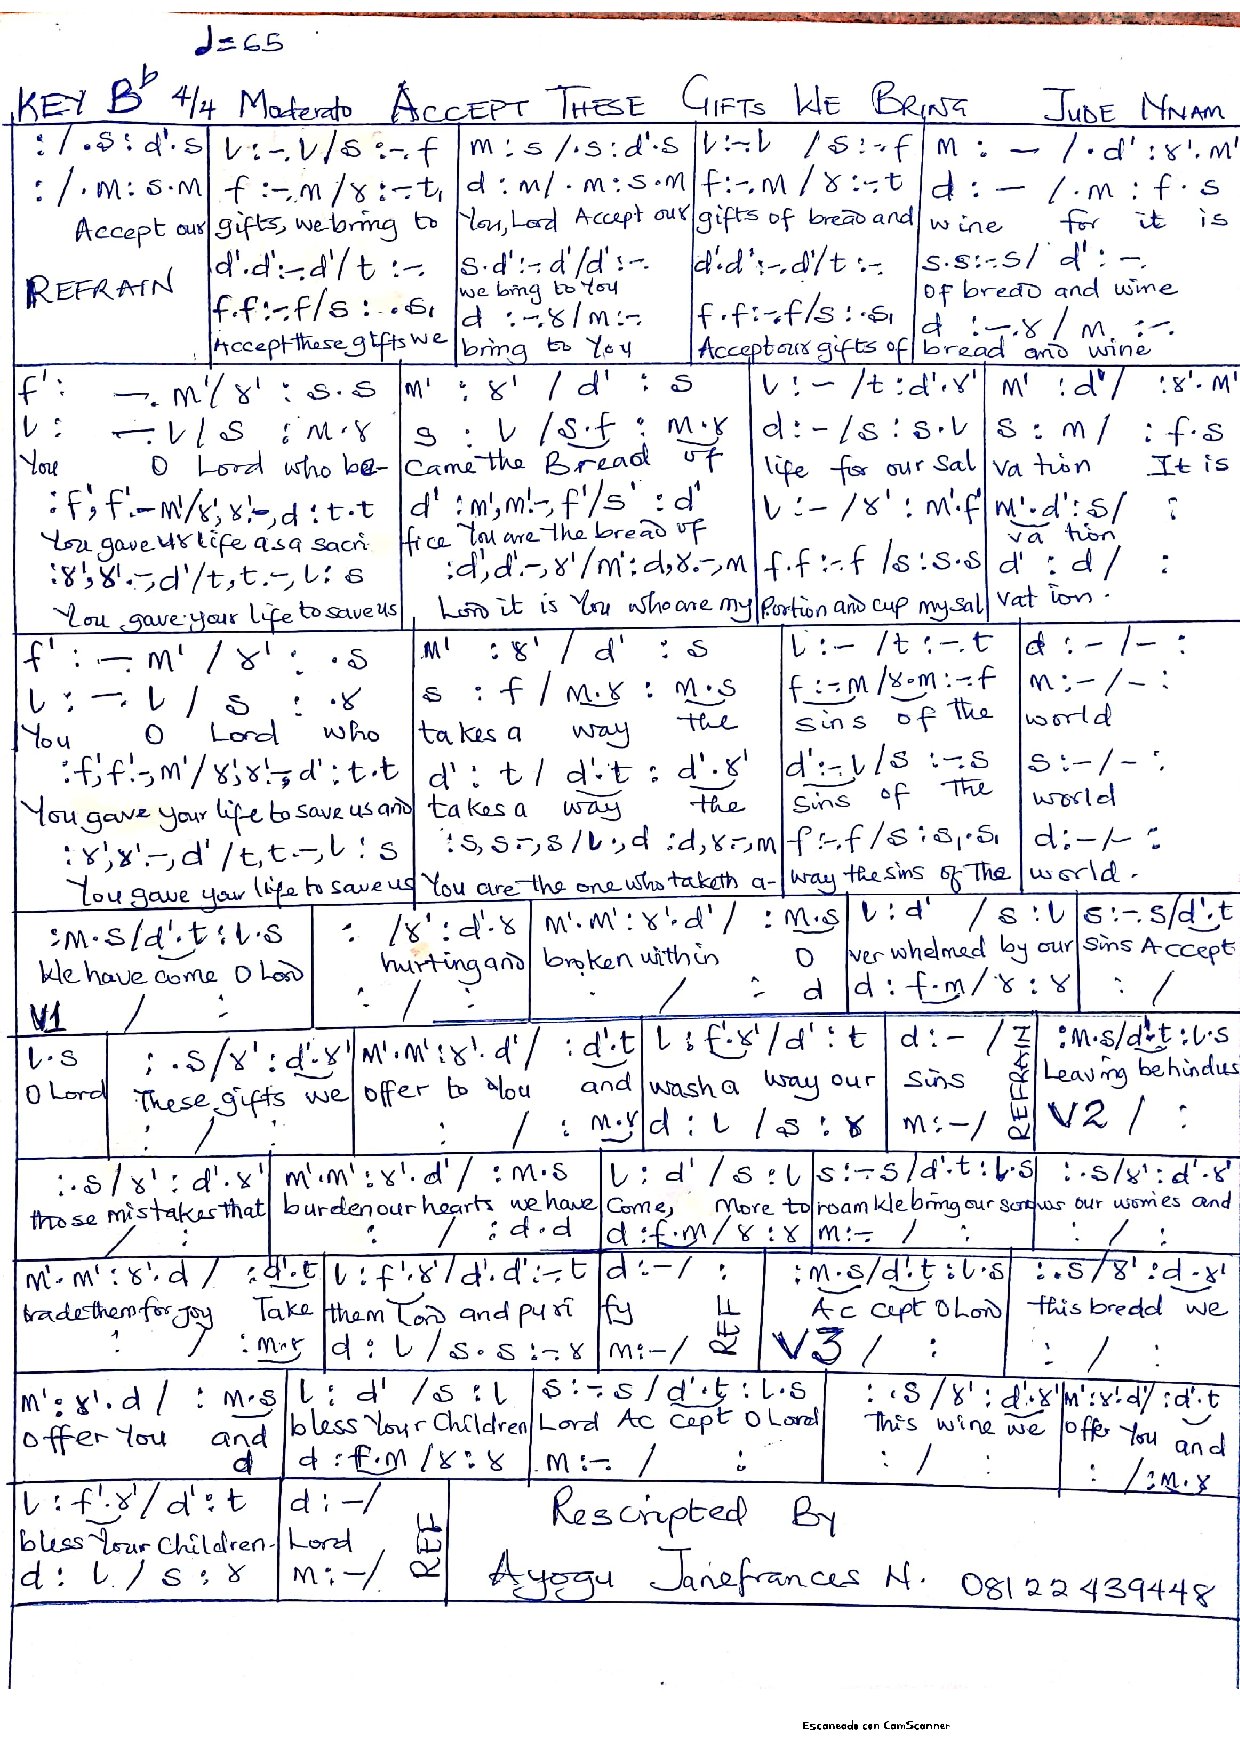 ♩=65
KEY Bb 4/4 Moderato ACCEPT THESE GIFTS WE BRING JUDE NNAM
:/ .s : d'.s | l :-. l/s :-. f | m : s /.s : d'.s | l :-. l /s :-. f | m : - /. d' : r'. m'
:/ . m : s . m | f :-. m / r :-. t, | d : m/ . m : s . m | f :-. m / r :-. t | d : - /. m : f . s
Accept our | gifts, we bring to | You, Lord Accept our | gifts of bread and | wine for it is
REFRAIN | d'.d' :-. d'/ t :-. | s.d' :- d'/d' :-. | d'.d' :-. d'/t :-. | s.s :-. s/ d' : -.
we bring to You | of bread and wine
f.f :-. f/s : . s, | d :-. r/m :-. | f.f :-. f/s : . s, | d :-. r / m :-.
Accept these gifts we | bring to You | Accept our gifts of | bread and wine
f' : -. m'/ r' : s . s | m' : r' / d' : s | l : - /t : d'. r' | m' : d'/ : r'. m'
l : -. l / s : m . r | s : l /s.f : m.r | d : - /s : s . l | s : m / : f . s
You O Lord who be- | came the Bread of | life for our sal | va tion It is
: f', f'.- m'/r', r'.-, d : t . t | d' : m', m'.-, f'/s' : d' | l : - /r' : m'. f' | m'. d' : s/ :
You gave ur life as a sacri | fice You are the bread of | va tion
: r', r'.-, d'/t, t.-, l : s | : d', d'.-, r'/m' : d, r.-, m | f . f :-. f /s : s . s | d' : d / :
You gave your life to save us | Lord it is You who are my | Portion and cup my sal | vat ion.
f' : -. m' / r' : . s | m' : r' / d' : s | l : - /t :-. t | d : - /- :
l : -. l / s : . r | s : f / m . r : m . s | f :-. m /r.m :-. f | m : - /- :
You O Lord who | takes a way the | sins of the | world
: f', f'.-, m'/ r', r'.-, d' : t . t | d' : t / d'. t : d'. r' | d' :-. l/s :-. s | s : - /- :
You gave your life to save us and | takes a way the | sins of the | world
: r', r'.-, d' /t, t.-, l : s | : s, s.-, s/l., d : d, r.-, m | f :-. f/s : s,. s, | d : - /- :
You gave your life to save us | You are the one who taketh a- | way the sins of The | world.
: m . s/d'. t : l . s | : /r' : d'. r | m'. m' : r'. d'/ : m . s | l : d' / s : l | s :-. s/d'. t
We have come O Lord | hurting and | broken within O | ver whelmed by our | sins Accept
V1 / : | : / : | : / : d | d : f.m/ r : r | : /
l . s | : . s/r' : d'. r' | m'. m' : r'. d'/ : d'. t | l : f'.r'/d' : t | d : - / REFRAIN | : m . s/d'. t : l . s
O Lord | These gifts we | offer to You and | wash a way our | sins | Leaving behind us
: / : | : / : m . r | d : l / s : r | m : - / | V2 / :
: . s / r' : d'. r' | m'. m' : r'. d'/ : m . s | l : d' / s : l | s :-. s/d'. t : l . s | : . s/r' : d'. r'
those mistakes that | burden our hearts we have | Come, More to | roam We bring our sorrows | our worries and
/ : | : / : d . d | d : f.m/ r : r | m :-. / : | : / :
m'. m' : r'. d / : d'. t | l : f'. r'/d'. d' :-. t | d :-/ : REF | : m . s/d'. t : l . s | : . s/r' : d . r'
trade them for joy Take | them Lord and puri | fy | Ac cept O Lord | this bread we
: / : m . r | d : l / s . s :-. r | m :-/ | V3 / : | : / :
m' : r'. d / : m . s | l : d' /s : l | s :-. s / d'. t : l . s | : . s / r' : d'. r' | m' : r'. d'/ : d'. t
offer You and | bless Your Children | Lord Ac cept O Lord | This wine we | offer You and
d | d : f.m /r : r | m :-. / : | : / : | : / : m . r
l : f'. r'/ d' : t | d : -/ REF | Rescripted By
bless Your Children- | Lord
d : l / s : r | m : -/ | Ayogu Janefrances N. 08122439448
Escaneado con CamScanner